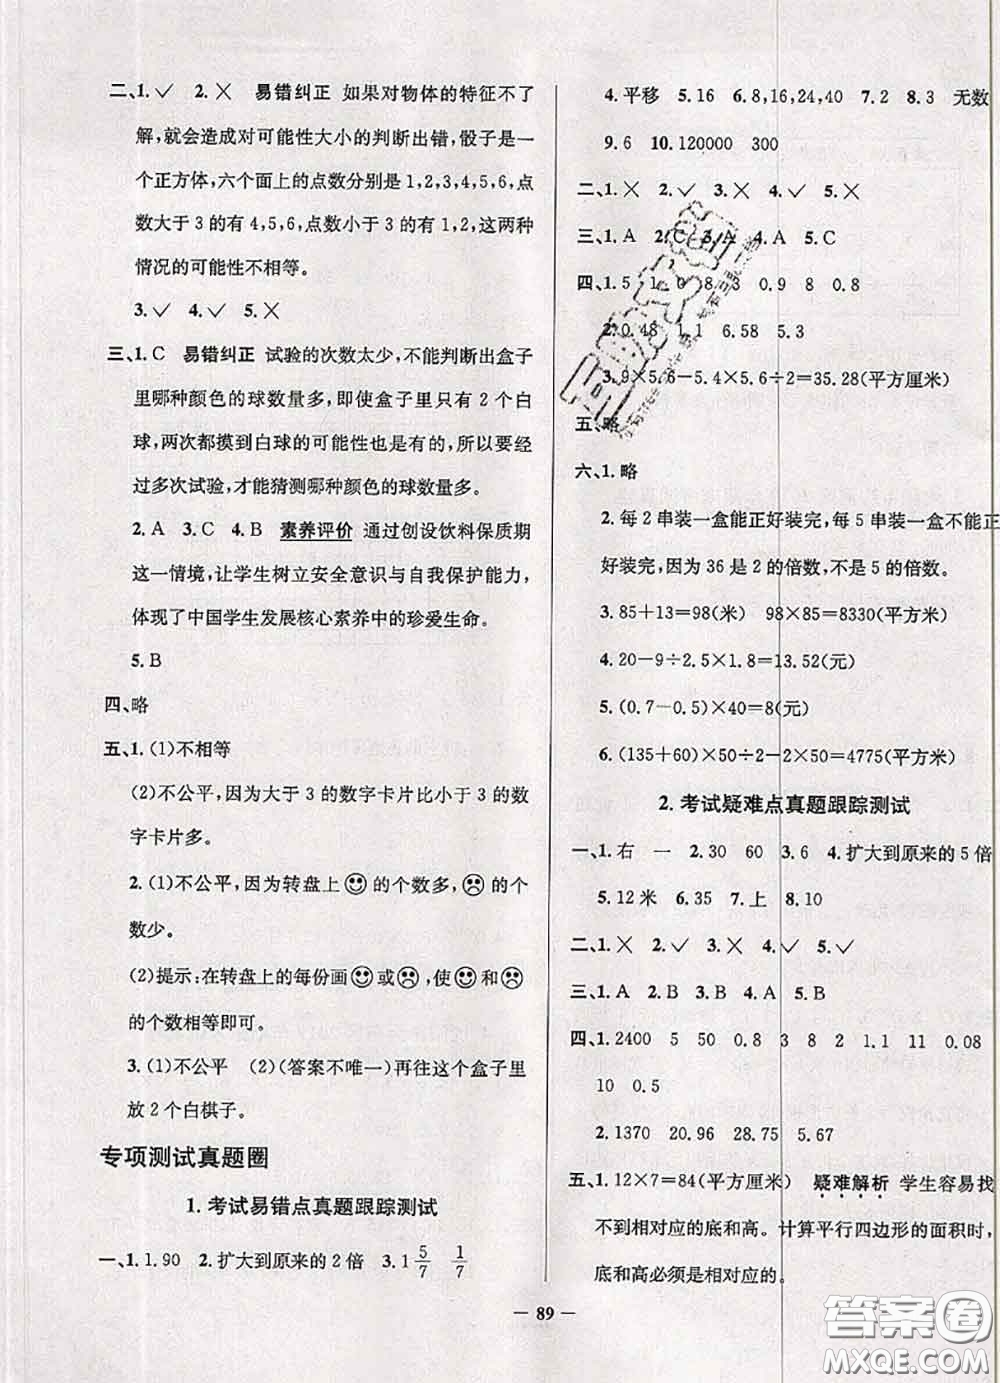 二、1.✓ 2.✗ 易错纠正 如果对物体的特征不了
解,就会造成对可能性大小的判断出错,骰子是一
个正方体,六个面上的点数分别是1,2,3,4,5,6,点
数大于 3 的有 4,5,6,点数小于 3 的有 1,2,这两种
情况的可能性不相等。
3.✓ 4.✓ 5.✗
三、1.C 易错纠正 试验的次数太少,不能判断出盒子
里哪种颜色的球数量多,即使盒子里只有 2 个白
球,两次都摸到白球的可能性也是有的,所以要经
过多次试验,才能猜测哪种颜色的球数量多。
2.A 3.C 4.B 素养评价 通过创设饮料保质期
这一情境,让学生树立安全意识与自我保护能力,
体现了中国学生发展核心素养中的珍爱生命。
5.B
四、略
五、1.(1)不相等
(2)不公平,因为大于 3 的数字卡片比小于 3 的数
字卡片多。
2.(1)不公平,因为转盘上☺的个数多,☹的个
数少。
(2)提示:在转盘上的每份画☺或☹,使☺和☹
的个数相等即可。
3.(1)不公平 (2)(答案不唯一)再往这个盒子里
放 2 个白棋子。
专项测试真题圈
1.考试易错点真题跟踪测试
一、1.1.90 2.扩大到原来的 2 倍 3.1 5/7 1/7
4.平移 5.16 6.8,16,24,40 7.2 8.3 无数
9.6 10.120000 300
二、1.✗ 2.✓ 3.✗ 4.✓ 5.✗
三、1.A 2.C 3.A 4.A 5.C
四、1.5 1 0 8 3 0.9 8 0.8
2.0.48 1.1 6.58 5.3
3.9×5.6−5.4×5.6÷2=35.28(平方厘米)
五、略
六、1.略
2.每 2 串装一盒能正好装完,每 5 串装一盒不能正
好装完,因为 36 是 2 的倍数,不是 5 的倍数。
3.85+13=98(米) 98×85=8330(平方米)
4.20−9÷2.5×1.8=13.52(元)
5.(0.7−0.5)×40=8(元)
6.(135+60)×50÷2−2×50=4775(平方米)
2.考试疑难点真题跟踪测试
一、1.右 一 2.30 60 3.6 4.扩大到原来的 5 倍
5.12 米 6.35 7.上 8.10
二、1.✗ 2.✓ 3.✗ 4.✓ 5.✓
三、1.A 2.B 3.B 4.A 5.B
四、1.2400 5 50 0.8 3 8 2 1.1 11 0.08
10 0.5
2.1370 20.96 28.75 5.67
五、1.12×7=84(平方厘米) 疑难解析 学生容易找
不到相对应的底和高。计算平行四边形的面积时,
底和高必须是相对应的。
— 89 —
答案圈
MXQE.COM